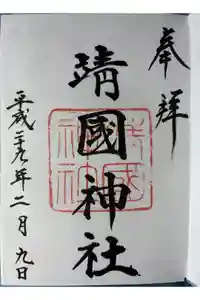 奉拝
靖國神社
平成二十九年二月九日